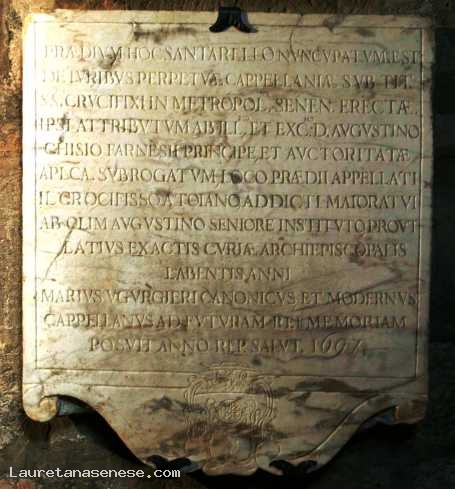 PRÆDIVM HOC SANTARELLO NVNCVPATVM EST
DE IVRIBVS PERPETVÆ CAPPELLANIÆ SVB TIT.
SS. CRVCIFIXI IN METROPOL. SENEN. ERECTÆ
IPSI ATTRIBVTVM AB ILL. ET EXC. D. AVGVSTINO
CHISIO FARNESII PRINCIPE, ET AVCTORITATÆ
APLCA. SVBROGATVM LOCO PRÆDII APPELLATI
IL CROCIFISSO A TOIANO ADDICTI MAIORATVI
AB OLIM AVGVSTINO SENIORE INSTITVTO PROVT
LATIVS EX ACTIS CVRIÆ ARCHIEPISCOPALIS
LABENTIS ANNI
MARIVS VGVRGIERI CANONICVS ET MODERNVS
CAPPELLANVS AD FVTVRAM REI MEMORIAM
POSVIT ANNO REP. SALVT. 1697
Lauretanasenese.com